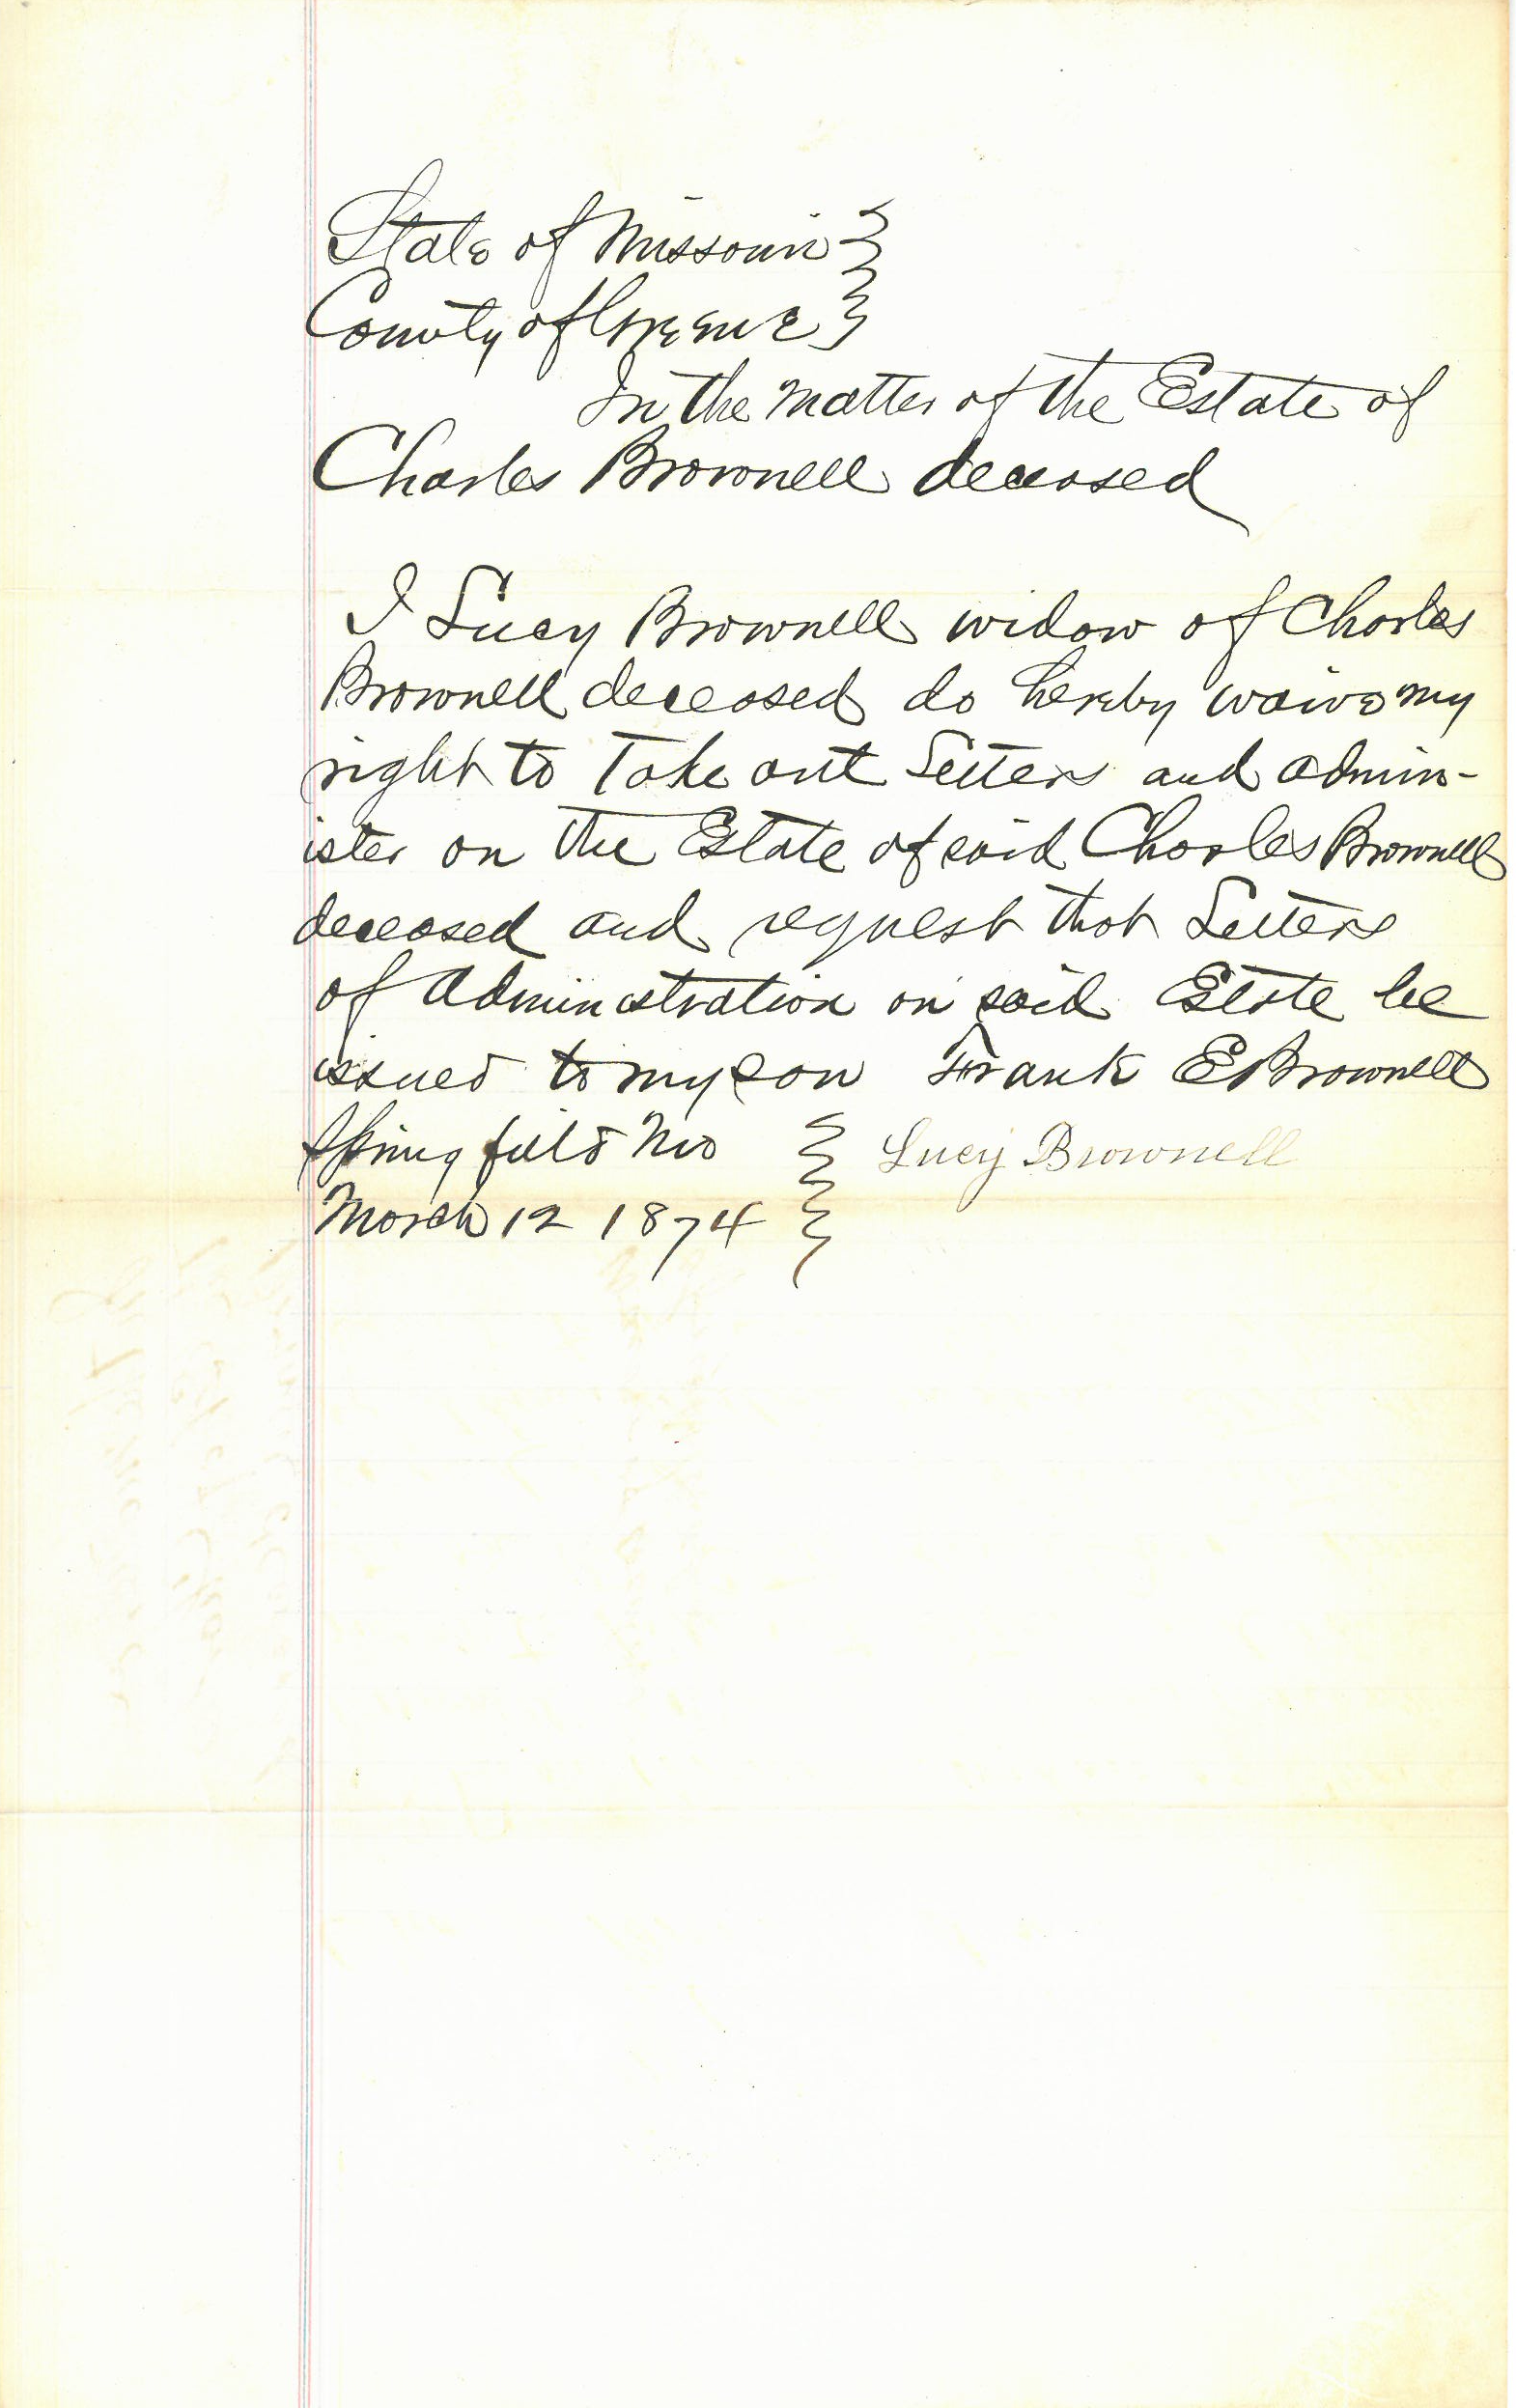 State of Missouri }
County of Greene }
In the matter of the Estate of
Charles Brownell deceased
I Lucy Brownell widow of Charles
Brownell deceased do hereby waive my
right to Take out Letters and admin-
ister on the Estate of said Charles Brownell
deceased and request that Letters
of administration on said Estate be
issued to my son Frank E Brownell
Springfield Mo } Lucy Brownell
March 12 1874 }